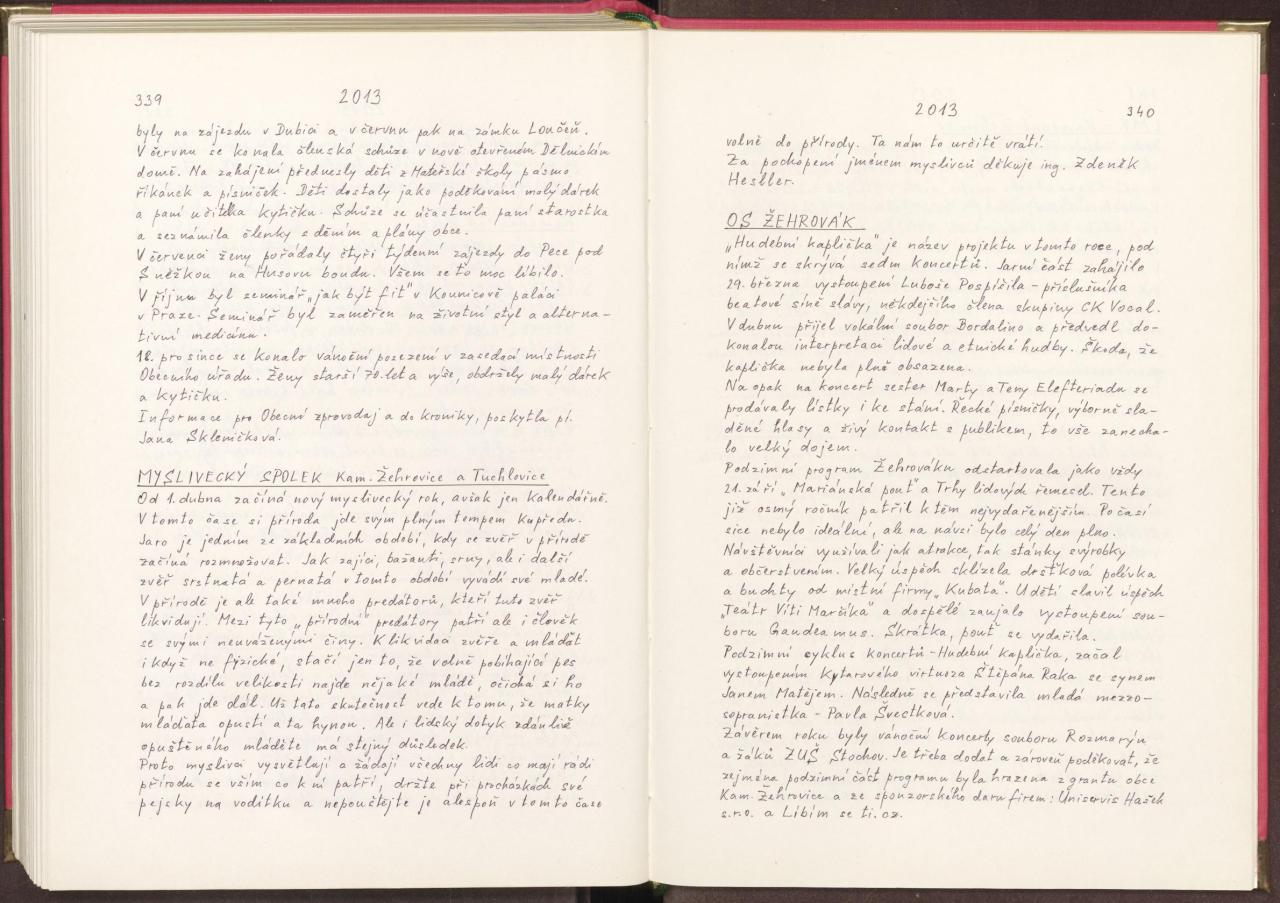 339
2013
byly na zájezdu v Dubici a v červnu pak na zámku Loučeň.
V červnu se konala členská schůze v nově otevřeném Dělnickém
domě. Na zahájení přednesly děti z Mateřské školy pásmo
říkánek a písniček. Děti dostaly jako poděkování malý dárek
a paní učitelka kytičku. Schůze se účastnila paní starostka
a seznámila členky s děním a plány obce.
V červenci ženy pořádaly čtyři týdenní zájezdy do Pece pod
Sněžkou na Husovu boudu. Všem se to moc líbilo.
V říjnu byl seminář „jak být fit" v Kounicově paláci
v Praze. Seminář byl zaměřen na životní styl a alterna-
tivní medicínu.
18. prosince se konalo vánoční posezení v zasedací místnosti
Obecního úřadu. Ženy starší 70. let a výše, obdržely malý dárek
a kytičku.
Informace pro Obecní zpravodaj a do kroniky, poskytla pí.
Jana Skleničková.
MYSLIVECKÝ SPOLEK Kam. Žehrovice a Tuchlovice
Od 1. dubna začíná nový myslivecký rok, avšak jen kalendářně.
V tomto čase si příroda jde svým plným tempem kupředu.
Jaro je jedním ze základních období, kdy se zvěř v přírodě
začíná rozmnožovat. Jak zajíci, bažanti, srny, ale i další
zvěř srstnatá a pernatá v tomto období vyvádí své mladé.
V přírodě je ale také mnoho predátorů, kteří tuto zvěř
likvidují. Mezi tyto „přírodní" predátory patří ale i člověk
se svými neuváženými činy. K likvidaci zvěře a mláďat
i když ne fyzické, stačí jen to, že volně pobíhající pes
bez rozdílu velikosti najde nějaké mládě, očichá si ho
a pak jde dál. Už tato skutečnost vede k tomu, že matky
mláďata opustí a ta hynou. Ale i lidský dotyk zdánlivě
opuštěného mláděte má stejný důsledek.
Proto myslivci vysvětlují a žádají všechny lidi co mají rádi
přírodu se vším co k ní patří, držte při procházkách své
pejsky na vodítku a nepouštejte je alespoň v tomto čase
2013
340
volně do přírody. Ta nám to určitě vrátí.
Za pochopení jménem myslivců děkuje ing. Zdeněk
Hesller.
OS ŽEHROVÁK
„Hudební kaplička" je název projektu v tomto roce, pod
nímž se skrývá sedm koncertů. Jarní část zahájilo
29. března vystoupení Luboše Pospíšila - příslušníka
beatové síně slávy, někdejšího člena skupiny CK Vocal.
V dubnu přijel vokální soubor Bordalino a předvedl do-
konalou interpretaci lidové a etnické hudby. Škoda, že
kaplička nebyla plně obsazena.
Na opak na koncert sester Marty a Teny Elefteriadu se
prodávaly lístky i ke stání. Řecké písničky, výborně sla-
děné hlasy a živý kontakt s publikem, to vše zanecha-
lo velký dojem.
Podzimní program Žehrováku odstartovala jako vždy
21. září „Mariánská pouť" a Trhy lidových řemesel. Tento
již osmý ročník patřil k těm nejvydařenějším. Počasí
sice nebylo ideální, ale na návsi bylo celý den plno.
Návštěvníci využívali jak atrakce, tak stánky s výrobky
a občerstvením. Velký úspěch sklízela dršťková polévka
a buchty od místní firmy „Kubata". U dětí slavil úspěch
„Teátr Víti Marčíka" a dospělé zaujalo vystoupení sou-
boru Gaudeamus. Skrátka, pouť se vydařila.
Podzimní cyklus koncertů - Hudební kaplička, začal
vystoupením kytarového virtuoza Štěpána Raka se synem
Janem Matějem. Následně se představila mladá mezzo-
sopranistka - Pavla Švestková.
Závěrem roku byly vánoční koncerty souboru Rozmarýn
a žáků ZUŠ Stochov. Je třeba dodat a zároveň poděkovat, že
zejména podzimní část programu byla hrazena z grantu obce
Kam. Žehrovice a ze sponzorského daru firem: Uniservis Hašek
s.r.o. a Líbím se ti.cz.